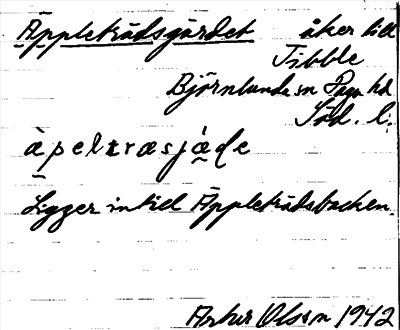 Äppleträdsgärdet åker till
Tibble
Björnlunda sn Daga hd
Söd. l.
àpeltræsjǻde
Ligger intill Äppleträdsbacken.
Artur Olsson 1942